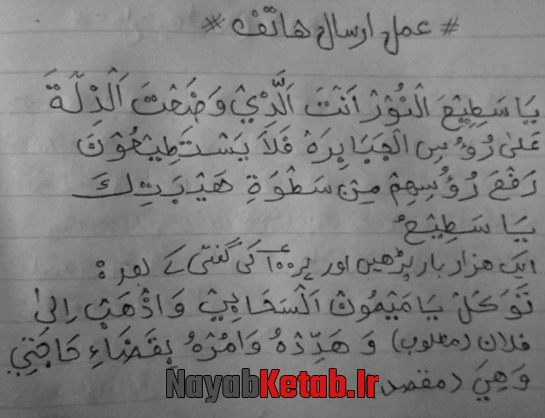 # عمل ارسال هاتف *
يَا سَطِيْعَ الْنُوْرْ اَنْتَ اَلَّذِيْ وَضَعْتَ اَلْذِلَّةَ
عَلىٰ رُؤُسِ الْجَبَابِرَهْ فَلاَ يَسْتَطِيْعُوْنَ
رَفْعَ رُؤُسِهِمْ مِنْ سَطْوَةِ هَيْبَتِكَ
يَا سَطِيْعُ
ایک ہزار بار پڑھیں اور ہر ۱۰۰ کی گنتی کے بعد :
تَوَكَلْ يَا مَيْمُوْنْ اَلْسَحَابِيْ وَاذْهَبْ اِلىٰ
فلان (مطلوب) وَ هَدِّدْهُ وَامُرْهُ بِقَضَاءِ حَاجَتِيْ
وَهِيَ (مقصد)
NayabKetab.Ir